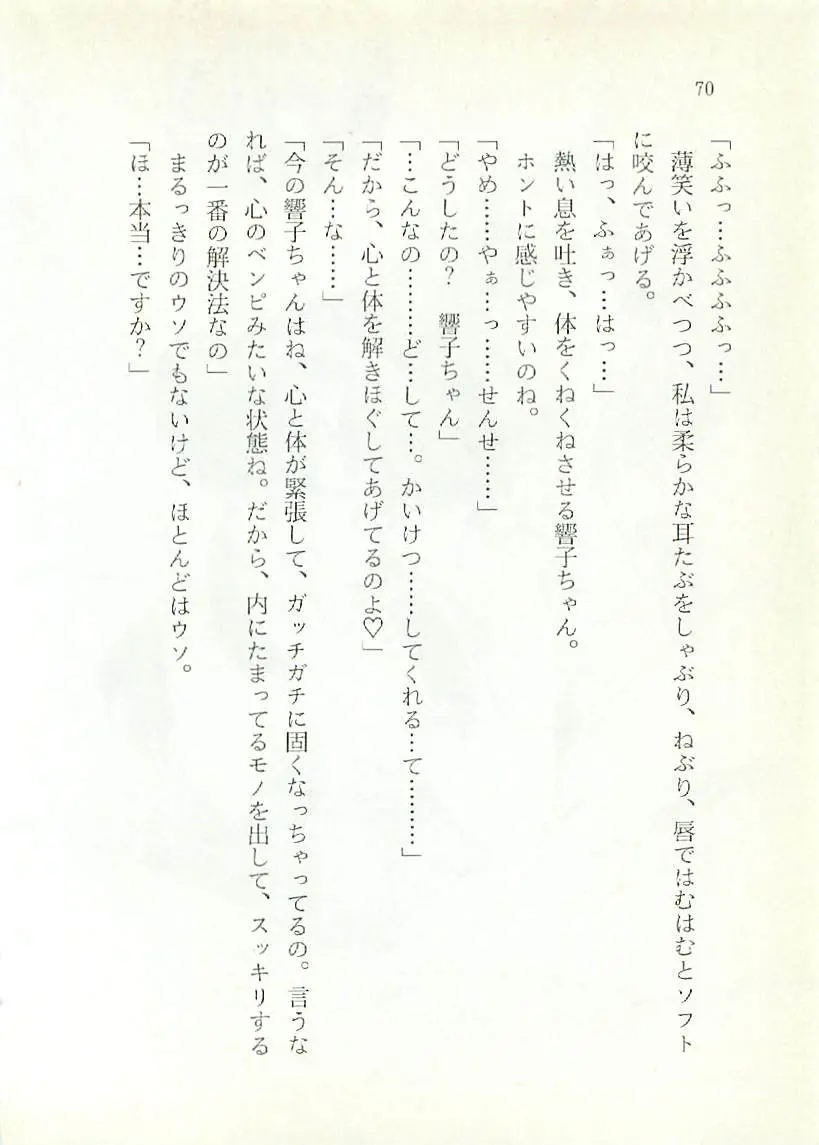 70
「ふふっ…ふふふふっ…」
薄笑いを浮かべつつ、私は柔らかな耳たぶをしゃぶり、ねぶり、唇ではむはむとソフト
に咬んであげる。
「はっ、ふぁっ…はっ…」
熱い息を吐き、体をくねくねさせる響子ちゃん。
ホントに感じやすいのね。
「やめ……やぁ…っ……せんせ……」
「どうしたの？　響子ちゃん」
「…こんなの………ど…して…。かいけつ……してくれる…て………」
「だから、心と体を解きほぐしてあげてるのよ♡」
「そん…な……」
「今の響子ちゃんはね、心と体が緊張して、ガッチガチに固くなっちゃってるの。言うな
れば、心のベンピみたいな状態ね。だから、内にたまってるモノを出して、スッキリする
のが一番の解決法なの」
まるっきりのウソでもないけど、ほとんどはウソ。
「ほ…本当…ですか？」